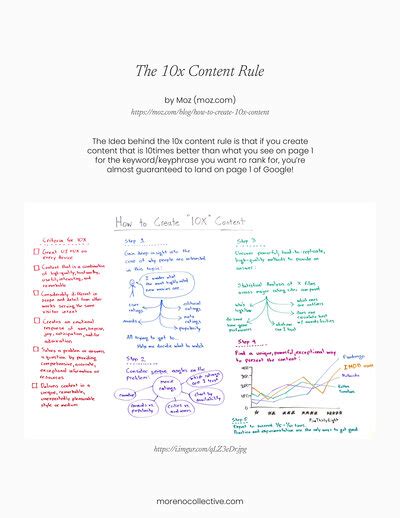 The 10x Content Rule
by Moz (moz.com)
https://moz.com/blog/how-to-create-10x-content
The Idea behind the 10x content rule is that if you create
content that is 10times better than what you see on page 1
for the keyword/keyphrase you want ro rank for, you're
almost guaranteed to land on page 1 of Google!
How to Create "10X" Content
Criteria for 10X
Great UI & UX on
every device
Content that is a combination
of high-quality, trustworthy,
useful, interesting, and
remarkable
Considerably different in
scope and detail from other
works serving the same
visitor intent
Creates an emotional
response of awe, surprise,
joy, anticipation, and/or
admiration
Solves a problem or answers
a question by providing
comprehensive, accurate,
exceptional information or
resources
Delivers content in a
unique, remarkable,
unexpectedly pleasurable
style or medium
Step 1
Gain deep insight into the
core of why people are interested
in this topic:
I wonder what
the most highly rated
new movies are
user
ratings
editorial
ratings
awards
meta
ratings
popularity
All trying to get to...
Help me decide what to watch
Step 2
Consider unique angles on the
problem:
which ratings
can I trust
movie
ratings
awards vs
popularity
critics vs
audiences
availability
Step 3
Discover powerful, hard-to-replicate,
high-quality methods to provide an
answer
Statistical Analysis of X films
across major rating sites can reveal
Step 4
Find a unique, powerful, exceptional way
to present the content!
Fandango
IMDB
Metacritic
Rotten
Tomatoes
FiveThirtyEight
Step 5
https://i.imgur.com/qLZ3eDr.jpg
morenocollective.com